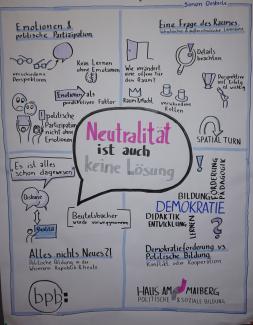 Simon
Emotionen &
politische Partizipation
verschiedene
Perspektiven
Kein Lernen
ohne Emotionen
Emotionen als
produktiver Faktor
politische
Partizipation
nicht ohne
Emotionen
Eine Frage des Raumes
Wie verändert
eine offene Tür
den Raum?
Raum & Macht
verschiedene
Rollen
Details
beachten
Perspektive
SPATIAL TURN
Neutralität
ist auch
keine Lösung
Es ist alles
schon dagewesen
Diskurs
Realität
Beutelsbacher
wurde vorweggenommen
Alles nichts Neues?!
Politische Bildung in der
Weimarer Republik & heute
bpb:
BILDUNG
FÖRDERUNG
PÄDAGOGIK
DEMOKRATIE
DIDAKTIK
ENTWICKLUNG
LERNEN
Demokratieförderung vs.
Politische Bildung
Konflikt oder Kooperation
HAUS AM MAIBERG
POLITISCHE & SOZIALE BILDUNG